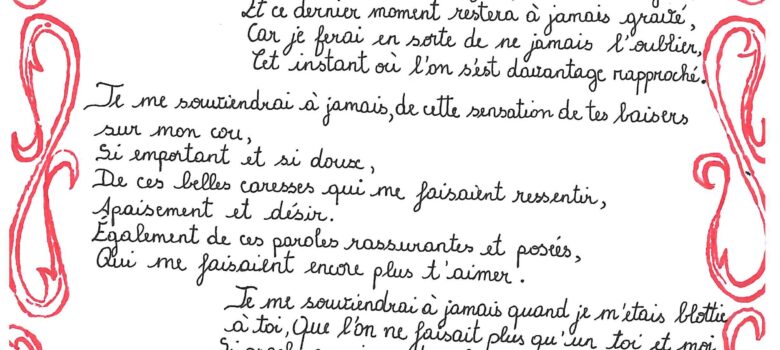 Et ce dernier moment restera à jamais graité,
Car je ferai en sorte de ne jamais l'oublier,
Cet instant où l'on s'est davantage rapproché.
Je me souviendrai à jamais, de cette sensation de tes baisers
sur mon cou,
Si emportant et si doux,
De ces belles caresses qui me faisaient ressentir,
Apaisement et désir.
Également de ces paroles rassurantes et posées,
Qui me faisaient encore plus t'aimer.
Je me souviendrai à jamais quand je m'étais blottie
à toi, Que l'on ne faisait plus qu'un toi et moi